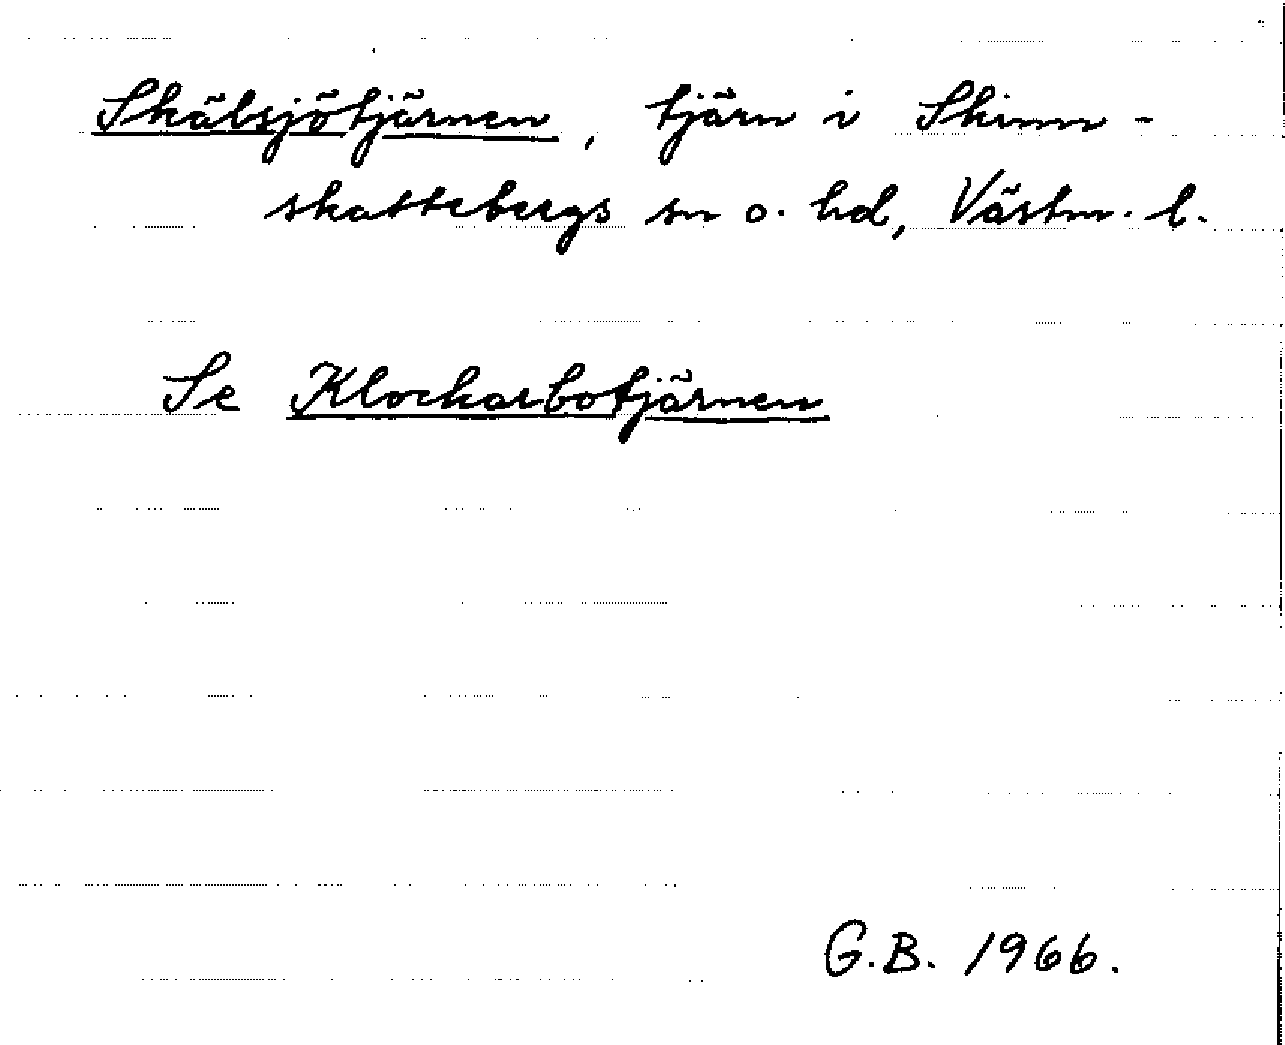 Skälsjötjärnen, tjärn i Skinn-
skattebergs sn o. hd, Västm. l.
Se Klockarbotjärnen
G.B. 1966.